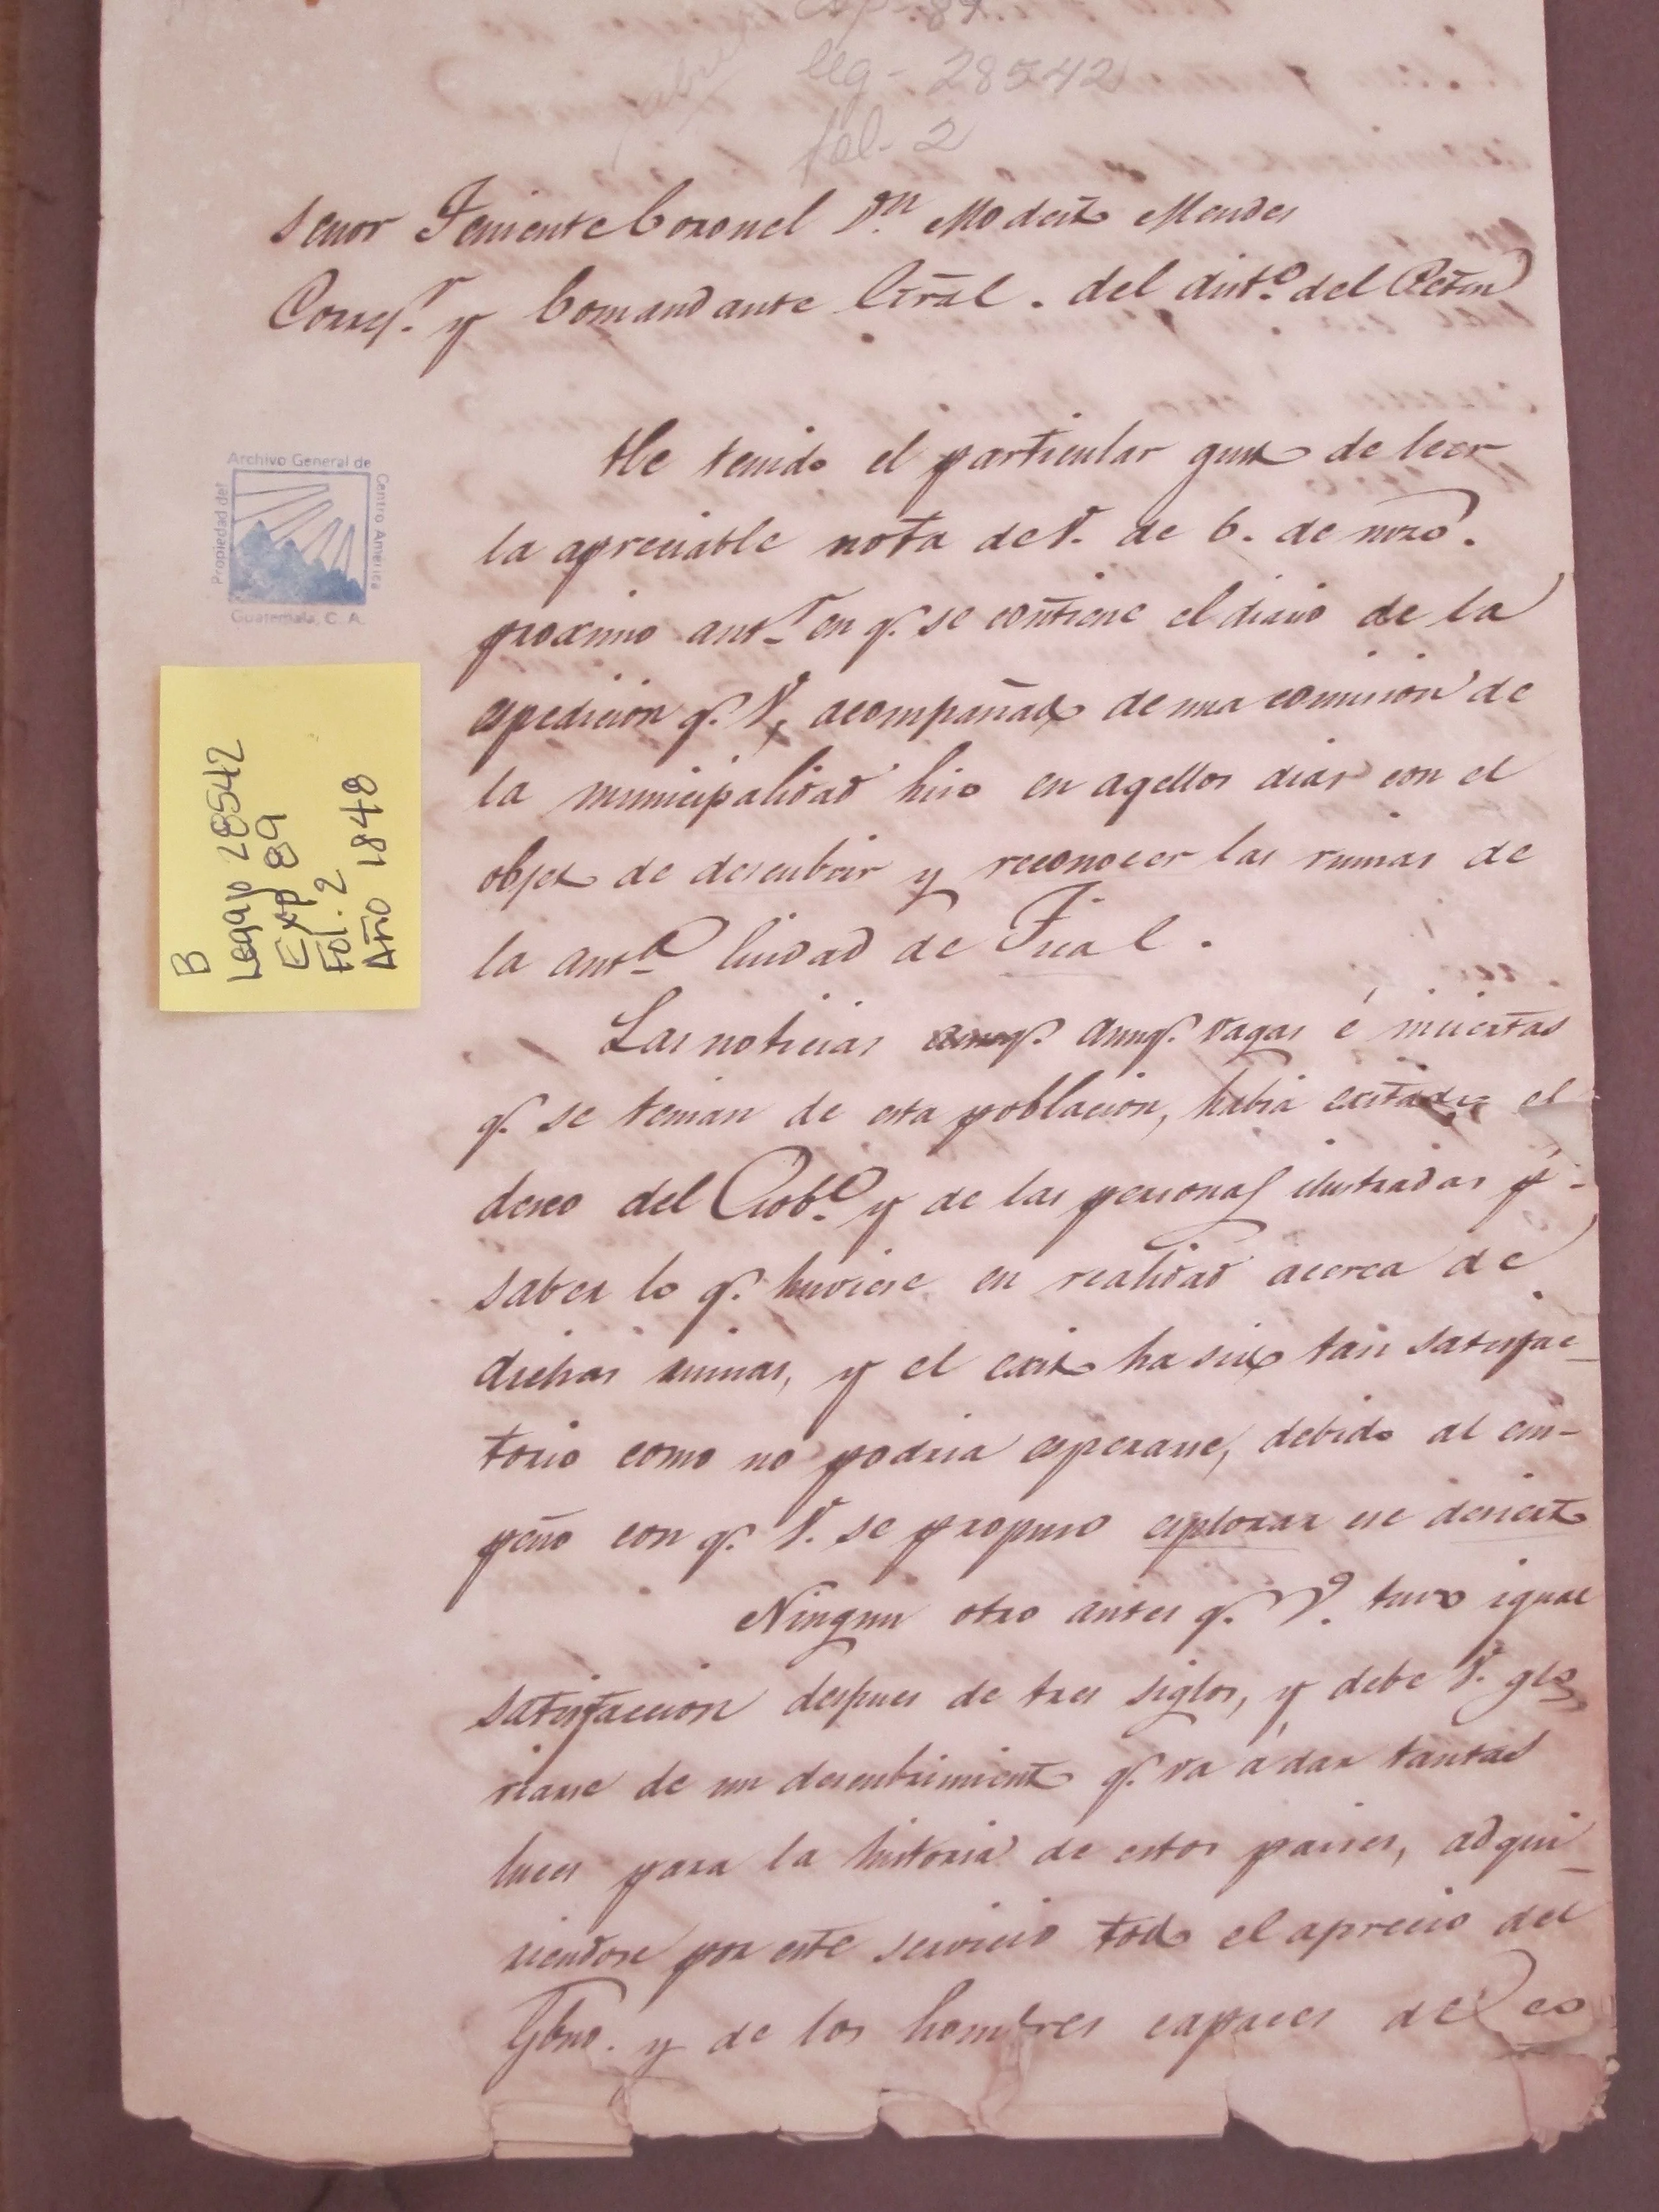 Exp- 89.
leg- 28542
fol- 2
Senor Teniente Coronel Dn. Modesto Mendes
Corregr. y Comandante Gral. del distº. del Peten
He tenido el particular gusto de leer
la apreciable nota de V. de 6. de mzo.
proximo antr. en q. se contiene el diario de la
espedicion q. V. acompañado de una comision de
la municipalidad hiso en aqellos dias con el
objeto de descubrir y reconocer las ruinas de
la antª. Ciudad de Tical.
Las noticias aunq. aunq. vagas é inciertas
q. se tenian de esta poblacion, habia exitado el
deseo del Gobº. y de las personas ilustradas pr.
saber lo q. huviese en realidad acerca de
dichas ruinas, y el exito ha sido tan satisfac-
torio como no podria esperarse, debido al em-
peño con q. V. se propuso esplorar ese desierto
Ningun otro antes q. V. tuvo igual
satisfaccion despues de tres siglos, y debe V. glo
riarse de un descubrimiento q. va á dar tantas
luces para la historia de estos paises, adqui-
riendose por este servicio todo el aprecio del
Gbno. y de los hombres capaces de co
Propiedad del
Archivo General de
Centro America
Guatemala, C. A.
B
Legajo 28542
Exp 89
Fol. 2
Año 1848